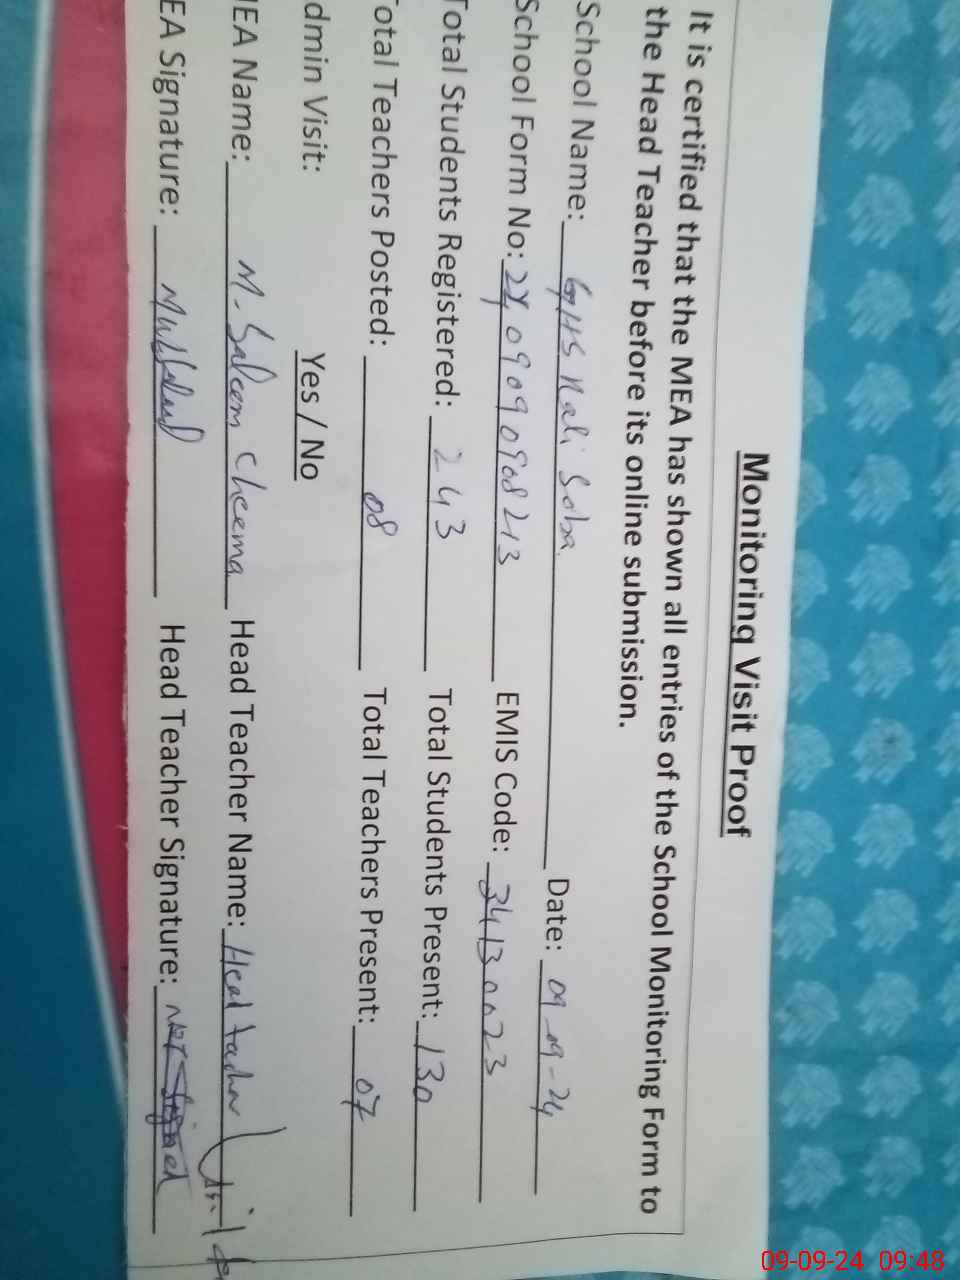 Monitoring Visit Proof
It is certified that the MEA has shown all entries of the School Monitoring Form to
the Head Teacher before its online submission.
School Name: GHS Nali Soba Date: 09-09-24
School Form No: 09090908213 EMIS Code: 34130023
Total Students Registered: 243 Total Students Present: 130
Total Teachers Posted: 08 Total Teachers Present: 07
dmin Visit: Yes / No
EA Name: M. Saleem Cheema Head Teacher Name: Head teacher
EA Signature: Head Teacher Signature: Not Signed
09-09-24 09:48